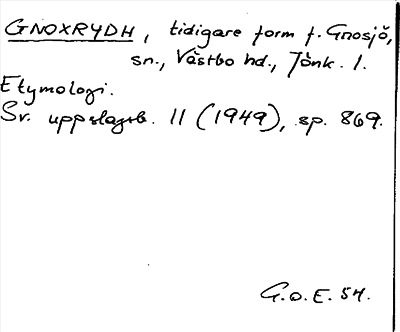 GNOXRYDH, tidigare form f. Gnosjö,
sn., Västbo hd., Jönk. l.
Etymologi.
Sv. uppslagsb. 11 (1949), sp. 869.
G.O.E. 54.